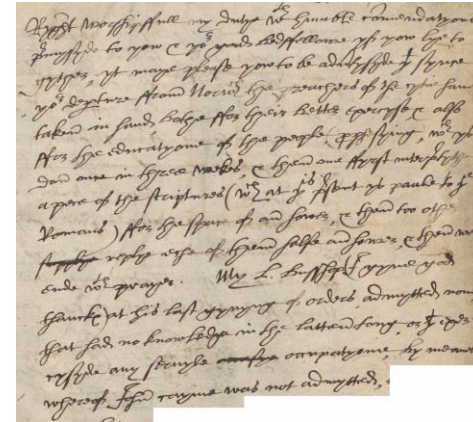 Ryght worshipffull my dutye wt humble comendatyons
promysyde to yow & yor good bedffellowe yff yow lye to
gyther, yt maye please yow to be advysyde yt synce
yor departure ffrom Norwch the preachers of the cytie have
taken in hand bothe ffor theyr better exercyse & also
ffor the educatyone of the people prophesying, wch ys
don once in three wekes, & then one ffyrst interpretythe
a pece of the scriptures (wch at ys present ys paule to ye
Romans) ffor the space of an hower, & then too other
replye eche of them halfe an hower, & then we
ende wt prayer. My L. Busshop gyvyne god
thanck at his last gyvyng of orders admytted none
that had no knowledge in the latten tong, or yt exer
cysyde any servyle occupatyone, by meanes
wheroff John cayme was not admytted,